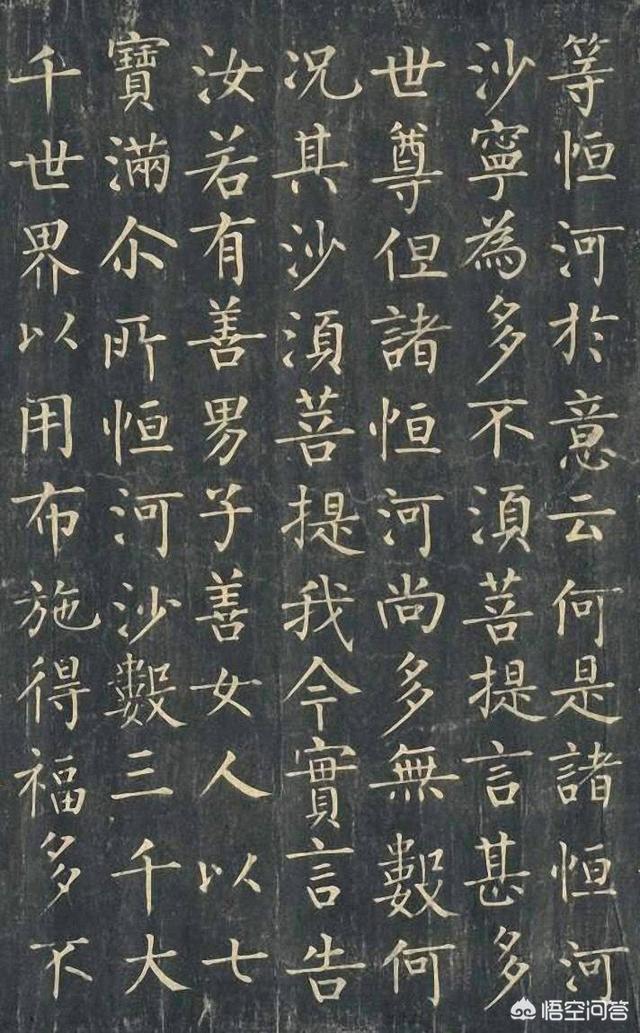 等恒河於意云何是諸恒河
沙寧為多不湏菩提言甚多
世尊但諸恒河尚多無數何
况其沙湏菩提我今實言告
汝若有善男子善女人以七
寶滿尒所恒河沙數三千大
千世界以用布施得福多不
悟空问答